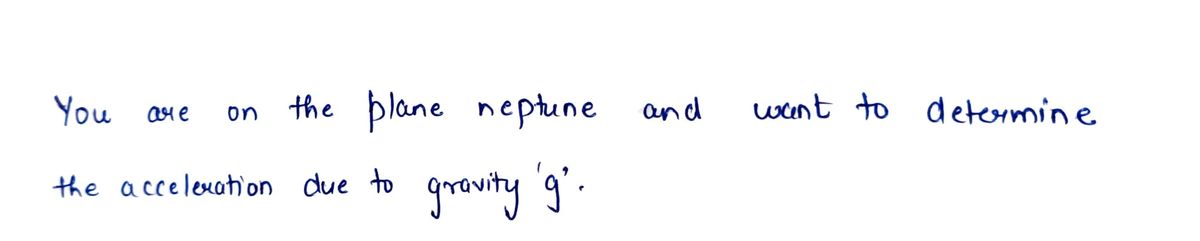 You are on the plane neptune and want to determine
the acceleration due to gravity 'g'.